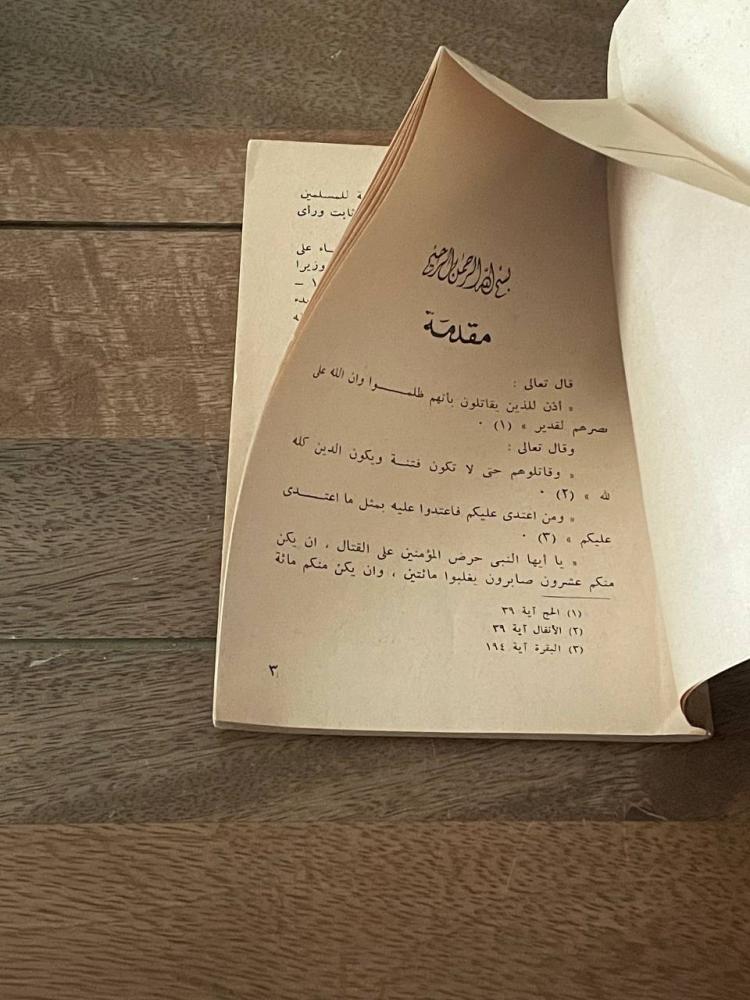 بسم الله الرحمن الرحيم
مقدمة
قال تعالى :
« أذن للذين يقاتلون بأنهم ظلمـــوا وان الله على
نصرهم لقدير » (١) ٠
وقال تعالى :
« وقاتلوهم حتى لا تكون فتنـة ويكون الدين كله
لله » (٢) ٠
« ومن اعتدى عليكم فاعتدوا عليه بمثل ما اعتـــدى
عليكم » (٣) ٠
« يا أيها النبى حرض المؤمنين على القتال ، ان يكن
منكم عشرون صابرون يغلبوا مائتين ، وان يكن منكم مائة
(١) الحج آية ٣٩
(٢) الأنفال آية ٣٩
(٣) البقرة آية ١٩٤
٣
للمسلمين
ورأى
على
وزيرا